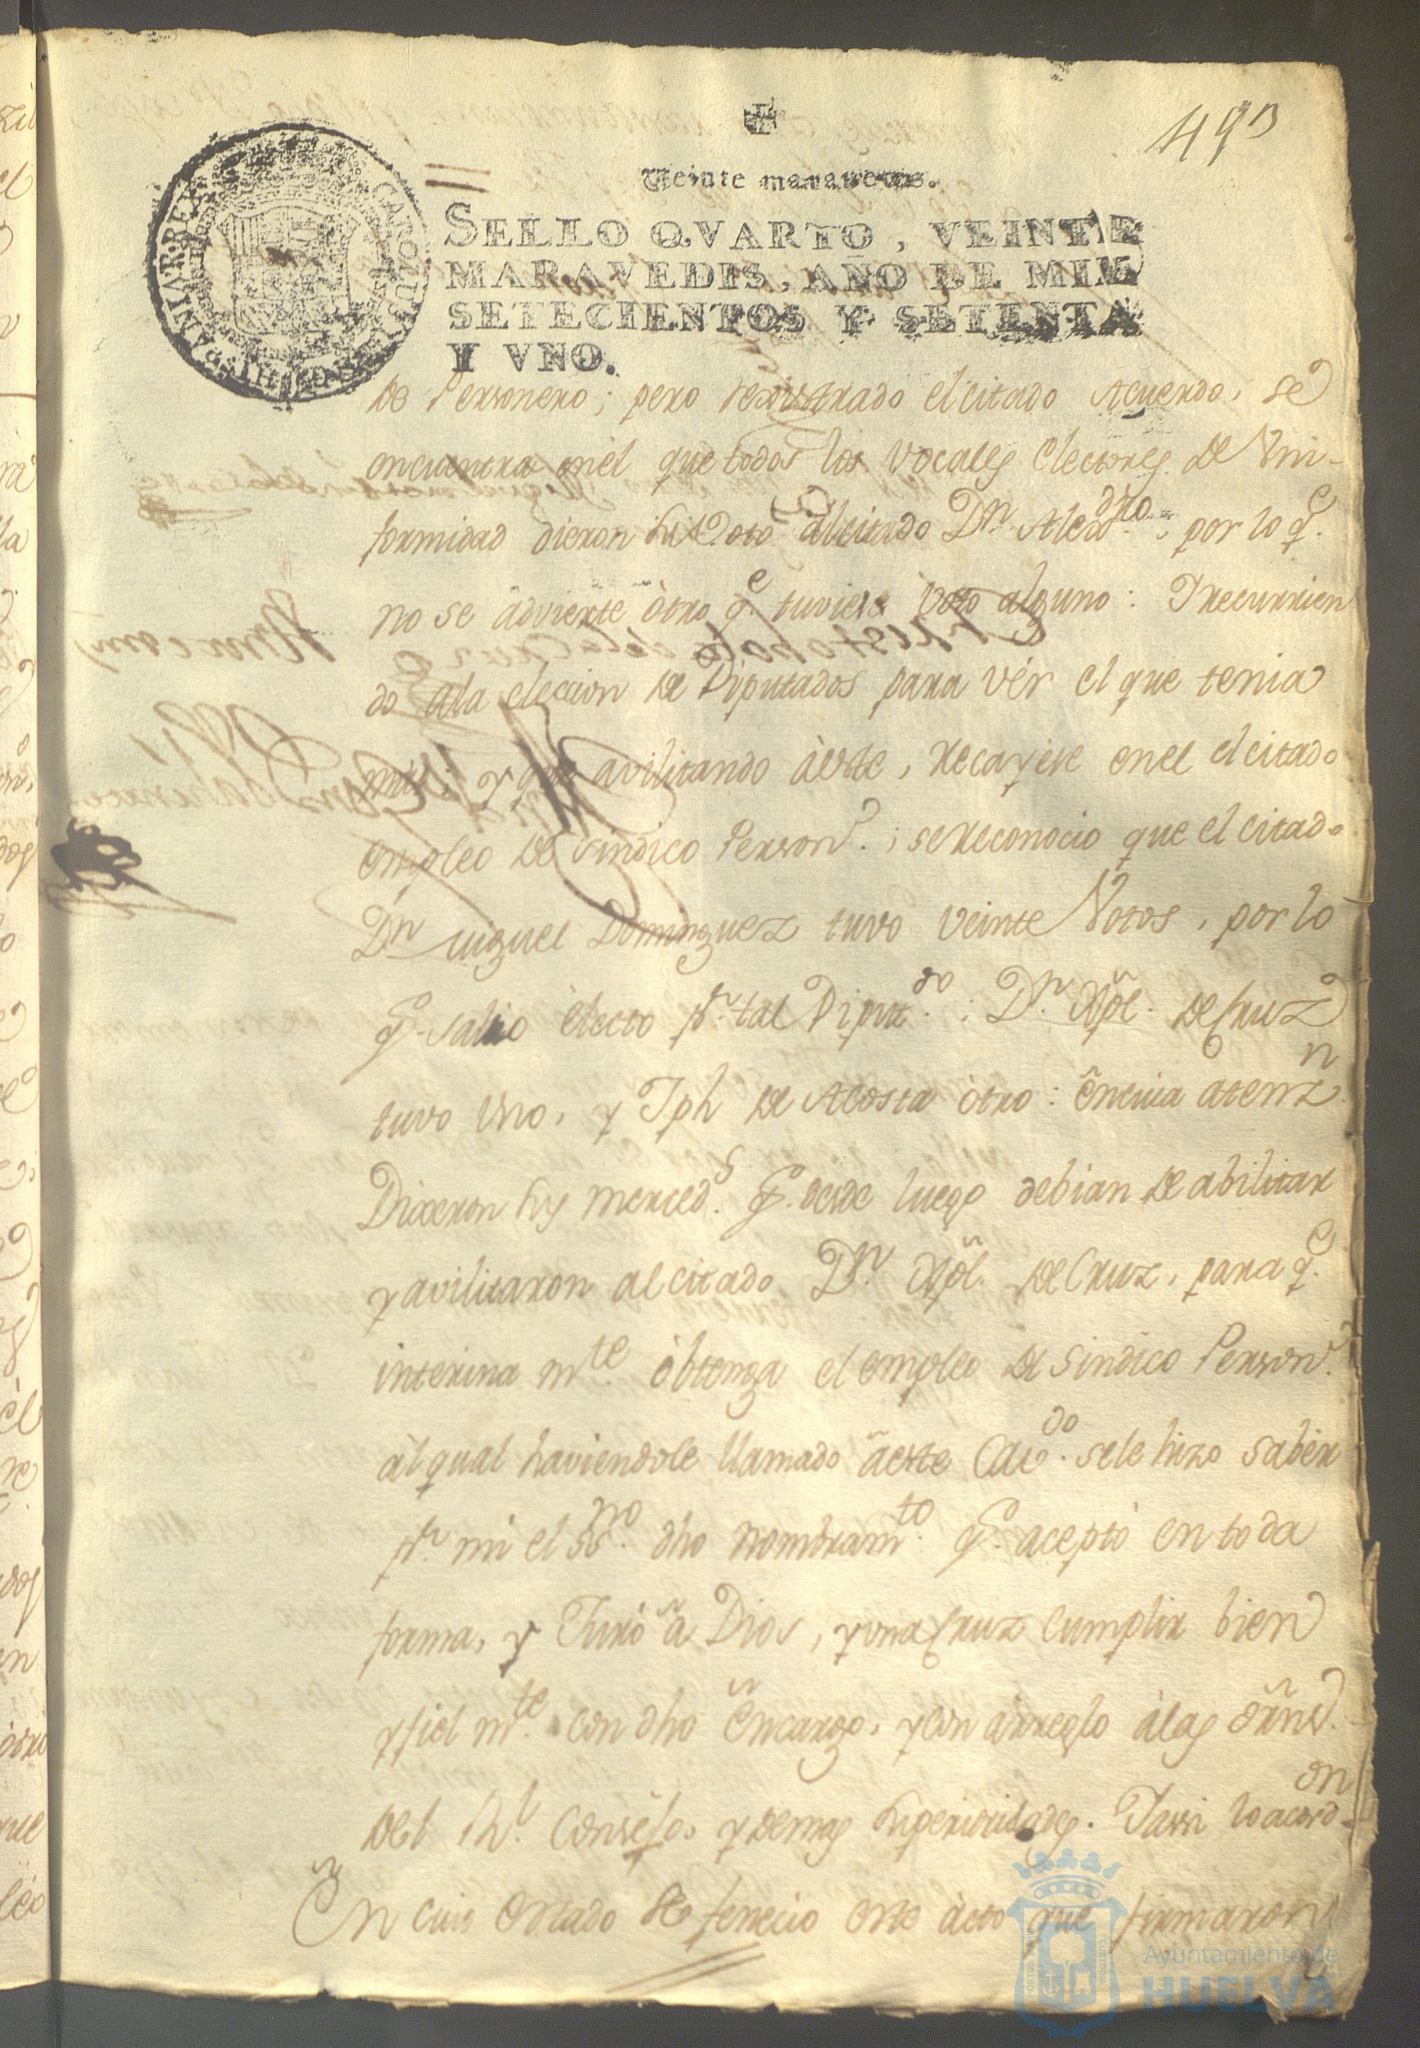 493
Veinte maravedis.
SELLO QVARTO, VEINTE
MARAVEDIS, AÑO DE MIL
SETECIENTOS Y SETENTA
Y VNO.
de Personero; pero rexistrado el citado Acuerdo, se
encuentra en èl que todos los Vocales electores de Vni-
formidad dieron su Voto al citado Dn. Alexdro., por lo qe.
no se advierte òtro qe. tuviese Voto alguno: Yrecurrien
do ala eleccion de Diputados para vér el que tenia
mas; y que avilitando àeste, recayese en el el citado
empleo de Sindico Person.; se reconocio que el citado
Dn. Miguel Dominguez tuvo veinte Votos, por lo
q. salio èlecto pr. tal Diputdo.: Dn. Xpl. de Cruz
tuvo Uno, y Jph de Acosta òtro: en cuia atenzn.
Dixeron sus merceds. q. desde luego debian de abilitar
y avilitaron al citado Dn. Xpl. de Cruz, para qe.
interina mte. òbtenga el empleo de Sindico Person.
àl qual haviendole llamado àeste Cavdo. sele hizo saber
pr. mi el Ssno. dho nombramto. q. aceptò en toda
forma, y Juró à Dios, y una Cruz cumplir bien
y fiel mte. con dho encargo, y con arreglo àlas òrns.
del Rl. Consejo, y demas superioridades. Yassi lo acordon.
En cuio estado se fenecio este àcto que firmaron
Ayuntamiento de
HUELVA